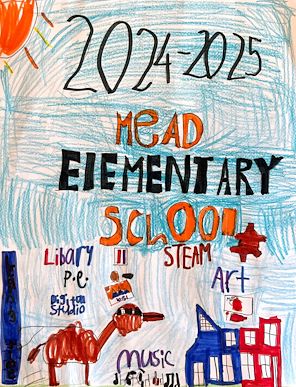 2024-2025
MeAD
ELEMENTARY
SChOOl
Libary
STEAM
P.e.
Art
Digital
Studio
music